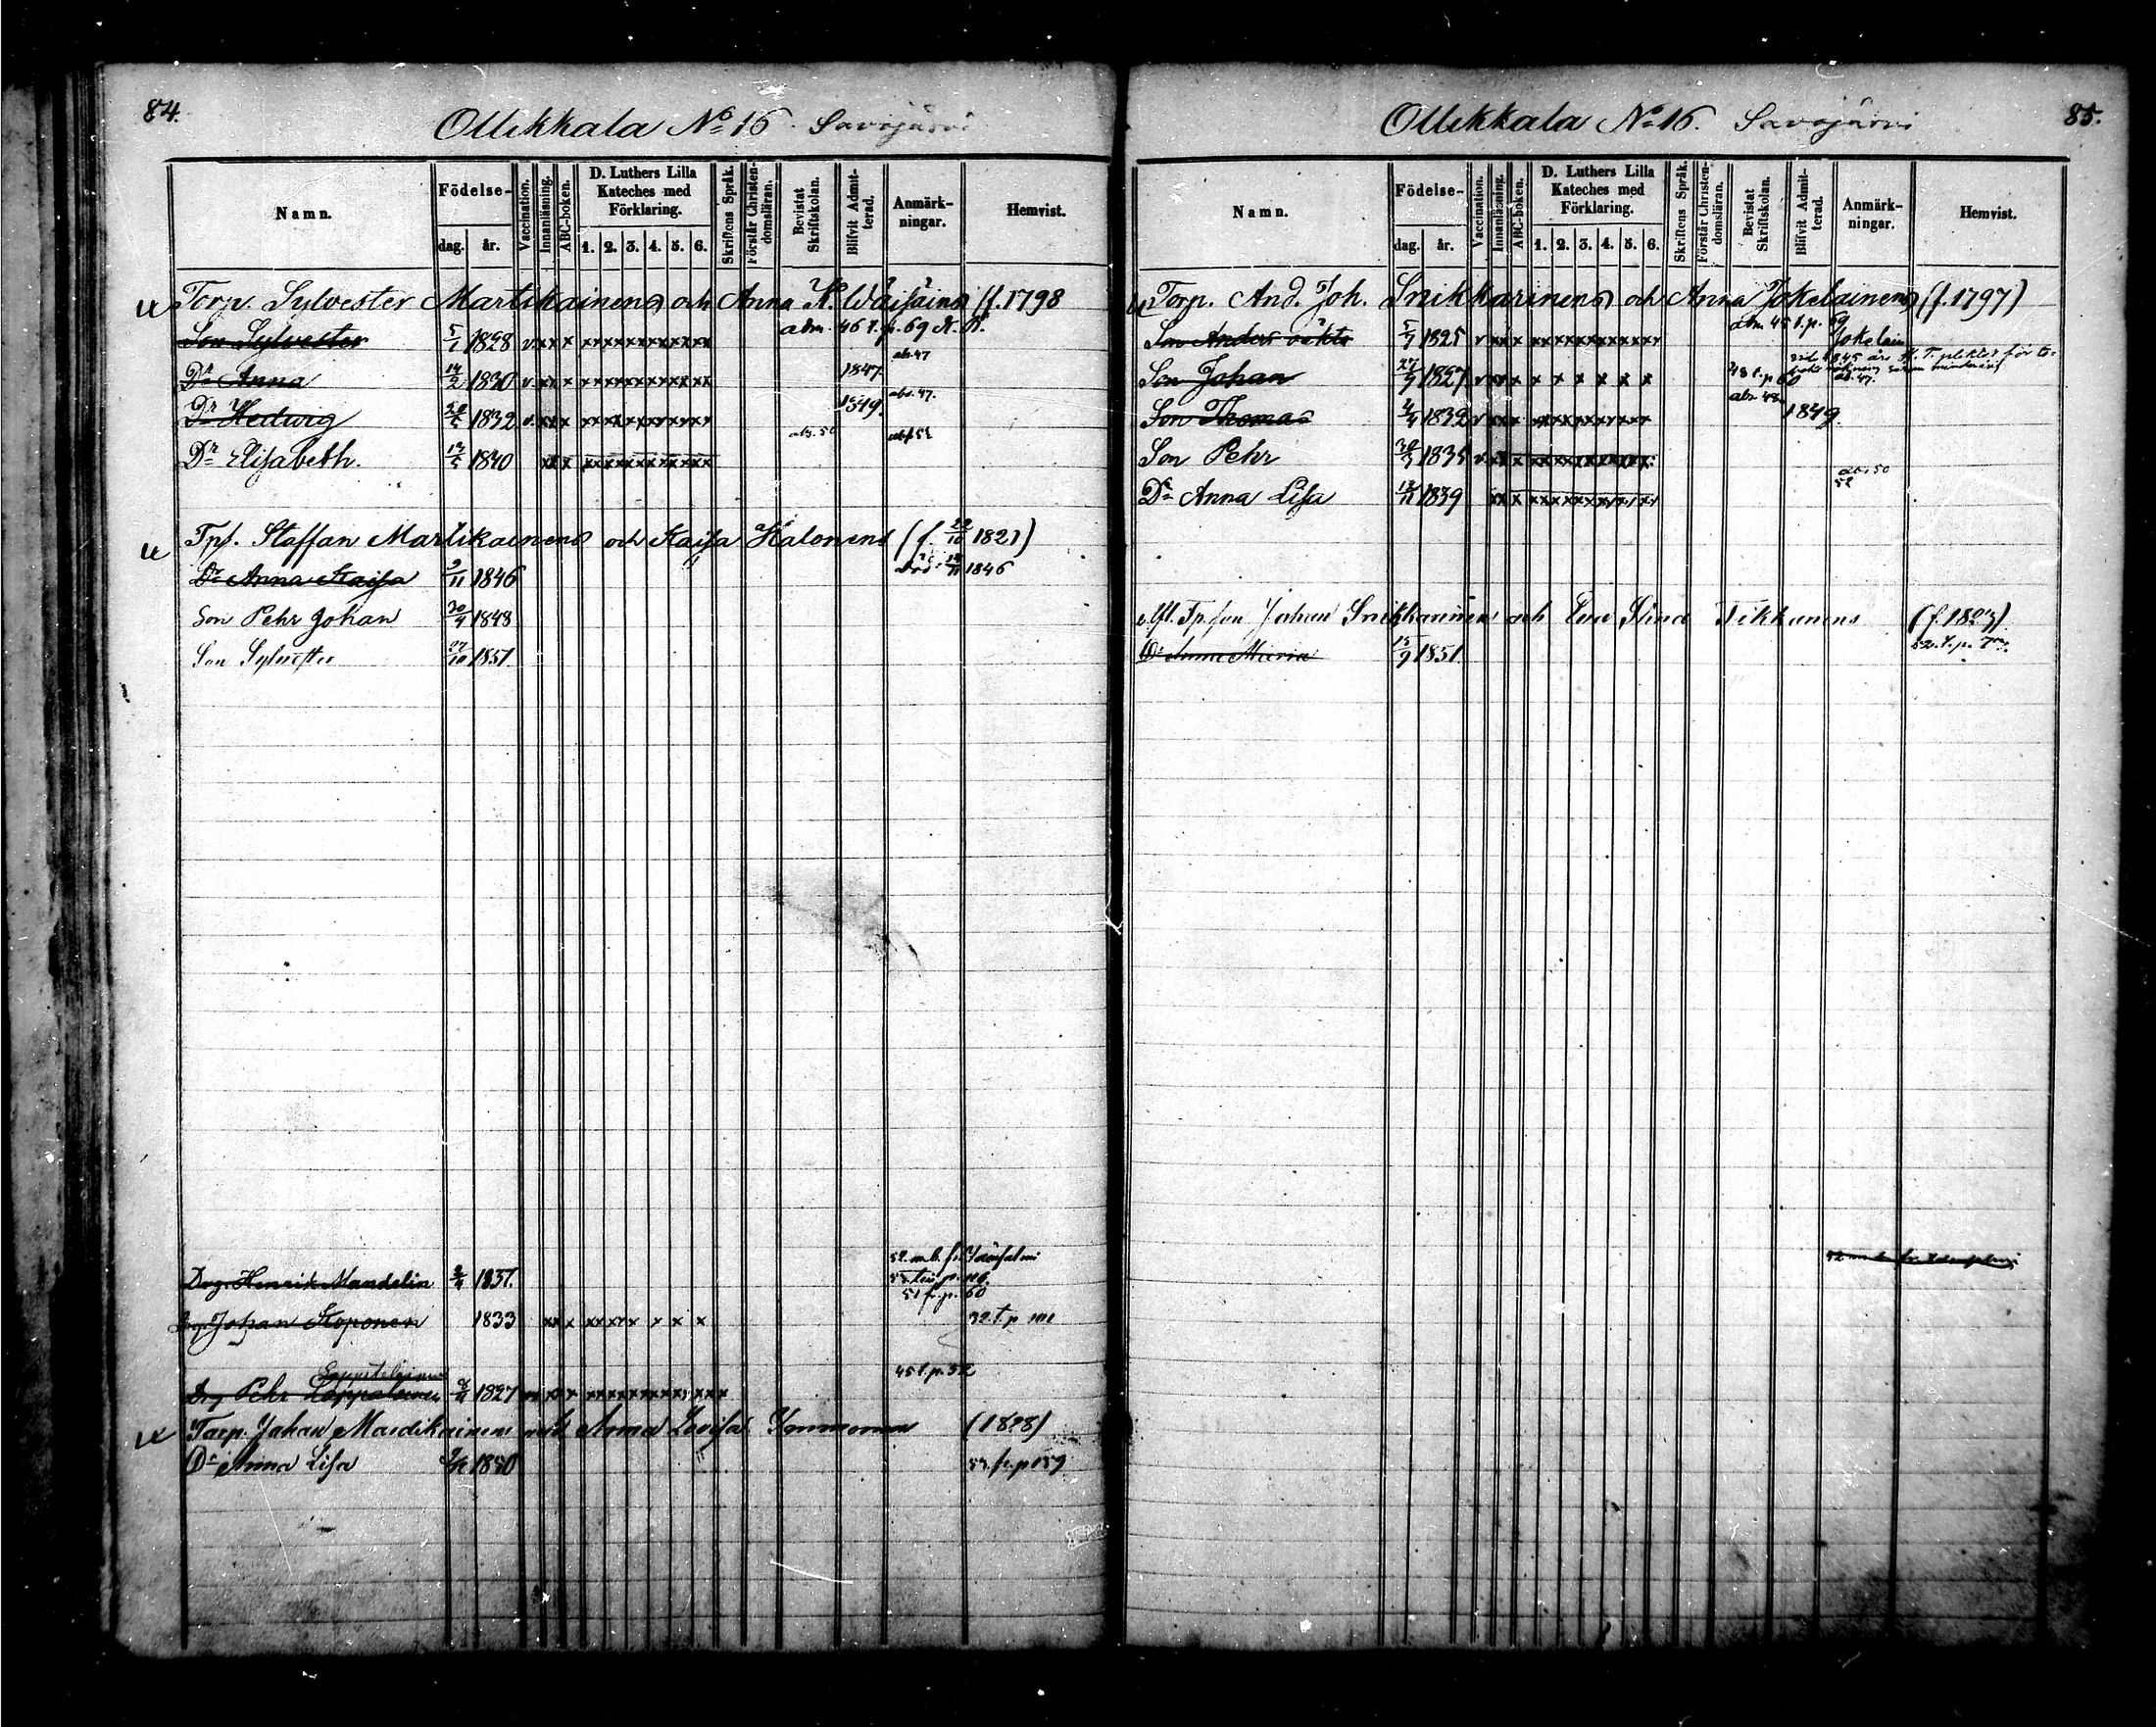 84.
Ollikkala No 16 Savojärvi
Namn.
Födelse-
dag. år.
Vaccination.
Innanläsning.
ABC-boken.
D. Luthers Lilla Kateches med Förklaring.
1. 2. 3. 4. 5. 6.
Skriftens Språk.
Förstår Christendomsläran.
Bevistat Skriftskolan.
Blifvit Admitterad.
Anmärkningar.
Hemvist.
Torp. Sylvester Martikainens och Anna K. Wäisäins (f. 1798
Son Sylvester 5/1 1828 v xx x xxxxxxxxxxxx adm. 46 t. p. 69 K. B.
Dr Anna 14/2 1830 v xx x xxxxxxxxxxxx 1847 abs. 47
Dr Hedwig 1832 v xx x xxxxxxxxxxxx 1849. abs. 47.
Dr Elisabeth. 1840 xx x xxxxxxxxxxxx abs. 50
Tpf. Staffan Martikainens och Kaisa Halonens (f. 22/10 1821)
Dr Anna Kaisa 3/11 1846 1846
Son Pehr Johan 30/4 1848
Son Sylvester 27/10 1851
52 m.b. fr. Idensalmi
Drg. Henrik Mandelin 1837. p. 116.
51 fr. p. 60
Drg. Johan Koponen 1833 xx x xxxx x x x 52 t. p 101
45 t. p. 52
Drg Pehr Lappalainen 1827 xx x xxxxxxxxxxxx
Torp. Johan Mardikainens och Anna Lovisa Immonens (1828)
Dr Anna Lisa 1850 53. fr. p 159
85.
Ollikkala No 16. Savojärvi
Namn.
Födelse-
dag. år.
Vaccination.
Innanläsning.
ABC-boken.
D. Luthers Lilla Kateches med Förklaring.
1. 2. 3. 4. 5. 6.
Skriftens Språk.
Förstår Christendomsläran.
Bevistat Skriftskolan.
Blifvit Admitterad.
Anmärkningar.
Hemvist.
Torp. And. Joh. Snikkarinens och Anna Jokelainens (f. 1797)
Son Anders oäkta 5/7 1825 v xx x xxxxxxxxxxxx adm 45 t. p. 69 Jokelain
Son Johan 27/9 1827 v xx x x x x x x x 48 t. p 60
Son Thomas 4/4 1832 v xx x xxxxxxxxxxx abs. 48. 1849.
Son Pehr 1835 v xx x xxxxxxxxxxxx
abs 50
52
Dr Anna Lisa 1839 xx x xxxxxxxxxxxx
Tp. son Johan Snikkarinens och Eva Stina Tikkanens (f. 1823)
Dr Anna Maria 15/9 1851. 52. t. p.